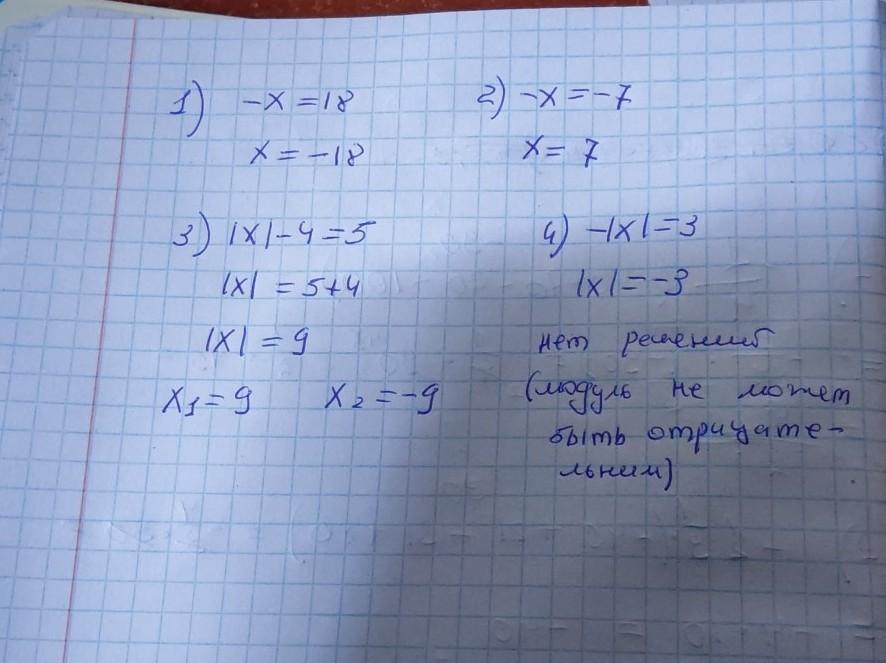 1) -x = 18
x = -18
2) -x = -7
x = 7
3) |x| - 4 = 5
|x| = 5+4
|x| = 9
x1 = 9 x2 = -9
4) -|x| = 3
|x| = -3
нет решений
(модуль не может
быть отрицате-
льним)